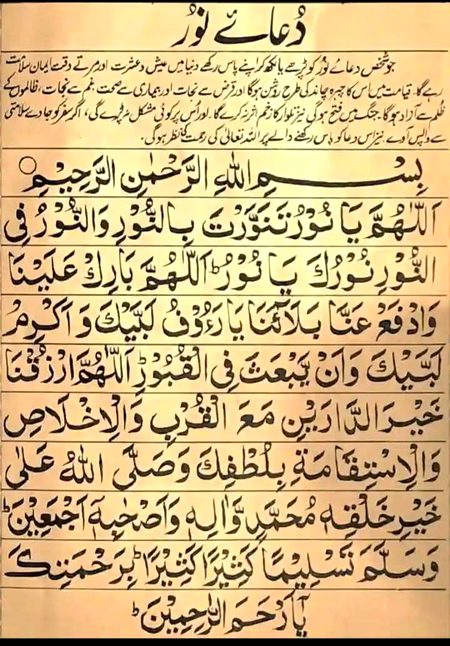 دُعائے نُور
جو شخص دعائے نُور کو پڑھے یا لکھ کر اپنے پاس رکھے دنیا میں عیش و عشرت اور مرتے وقت ایمان سلامت
رہے گا۔ قیامت میں اس کا چہرہ چاند کی طرح روشن ہوگا اور قرض سے نجات اور بیماری سے صحت، غم سے نجات، ظالموں کے
ظلم سے آزاد ہوگا۔ جنگ میں فتح ہوگی نیز تلوار کا زخم اثر نہ کرے گا۔ اور اُس پر کوئی مشکل نہ پڑے گی، اگر سفر کو جاوے سلامتی
سے واپس آوے۔ نیز اس دعا کو پاس رکھنے والے پر اللہ تعالیٰ کی رحمت کی نظر ہوگی۔
بِسْمِ اللهِ الرَّحْمٰنِ الرَّحِيْمِ
اَللّٰهُمَّ يَا نُوْرُ تَنَوَّرْتَ بِالنُّوْرِ وَالنُّوْرُ فِي
النُّوْرِ نُوْرُكَ يَا نُوْرُ ط اَللّٰهُمَّ بَارِكْ عَلَيْنَا
وَادْفَعْ عَنَّا بَلَآئَنَا يَا رَءُوْفُ لَبَّيْكَ وَ اَكْرِمْ
لَبَّيْكَ وَاَنْ يَبْعَثَ فِي الْقُبُوْرِ ط اَللّٰهُمَّ ارْزُقْنَا
خَيْرَ الدَّارَيْنِ مَعَ الْقُرْبِ وَالْاِخْلَاصِ
وَالْاِسْتِقَامَةِ بِلُطْفِكَ وَصَلَّى اللهُ عَلٰى
خَيْرِ خَلْقِهٖ مُحَمَّدٍ وَّاٰلِهٖ وَاَصْحٰبِهٖٓ اَجْمَعِيْنَ ط
وَسَلَّمَ تَسْلِيْمًا كَثِيْرًا كَثِيْرًا ط بِرَحْمَتِكَ
يَآ اَرْحَمَ الرّٰحِمِيْنَ ط